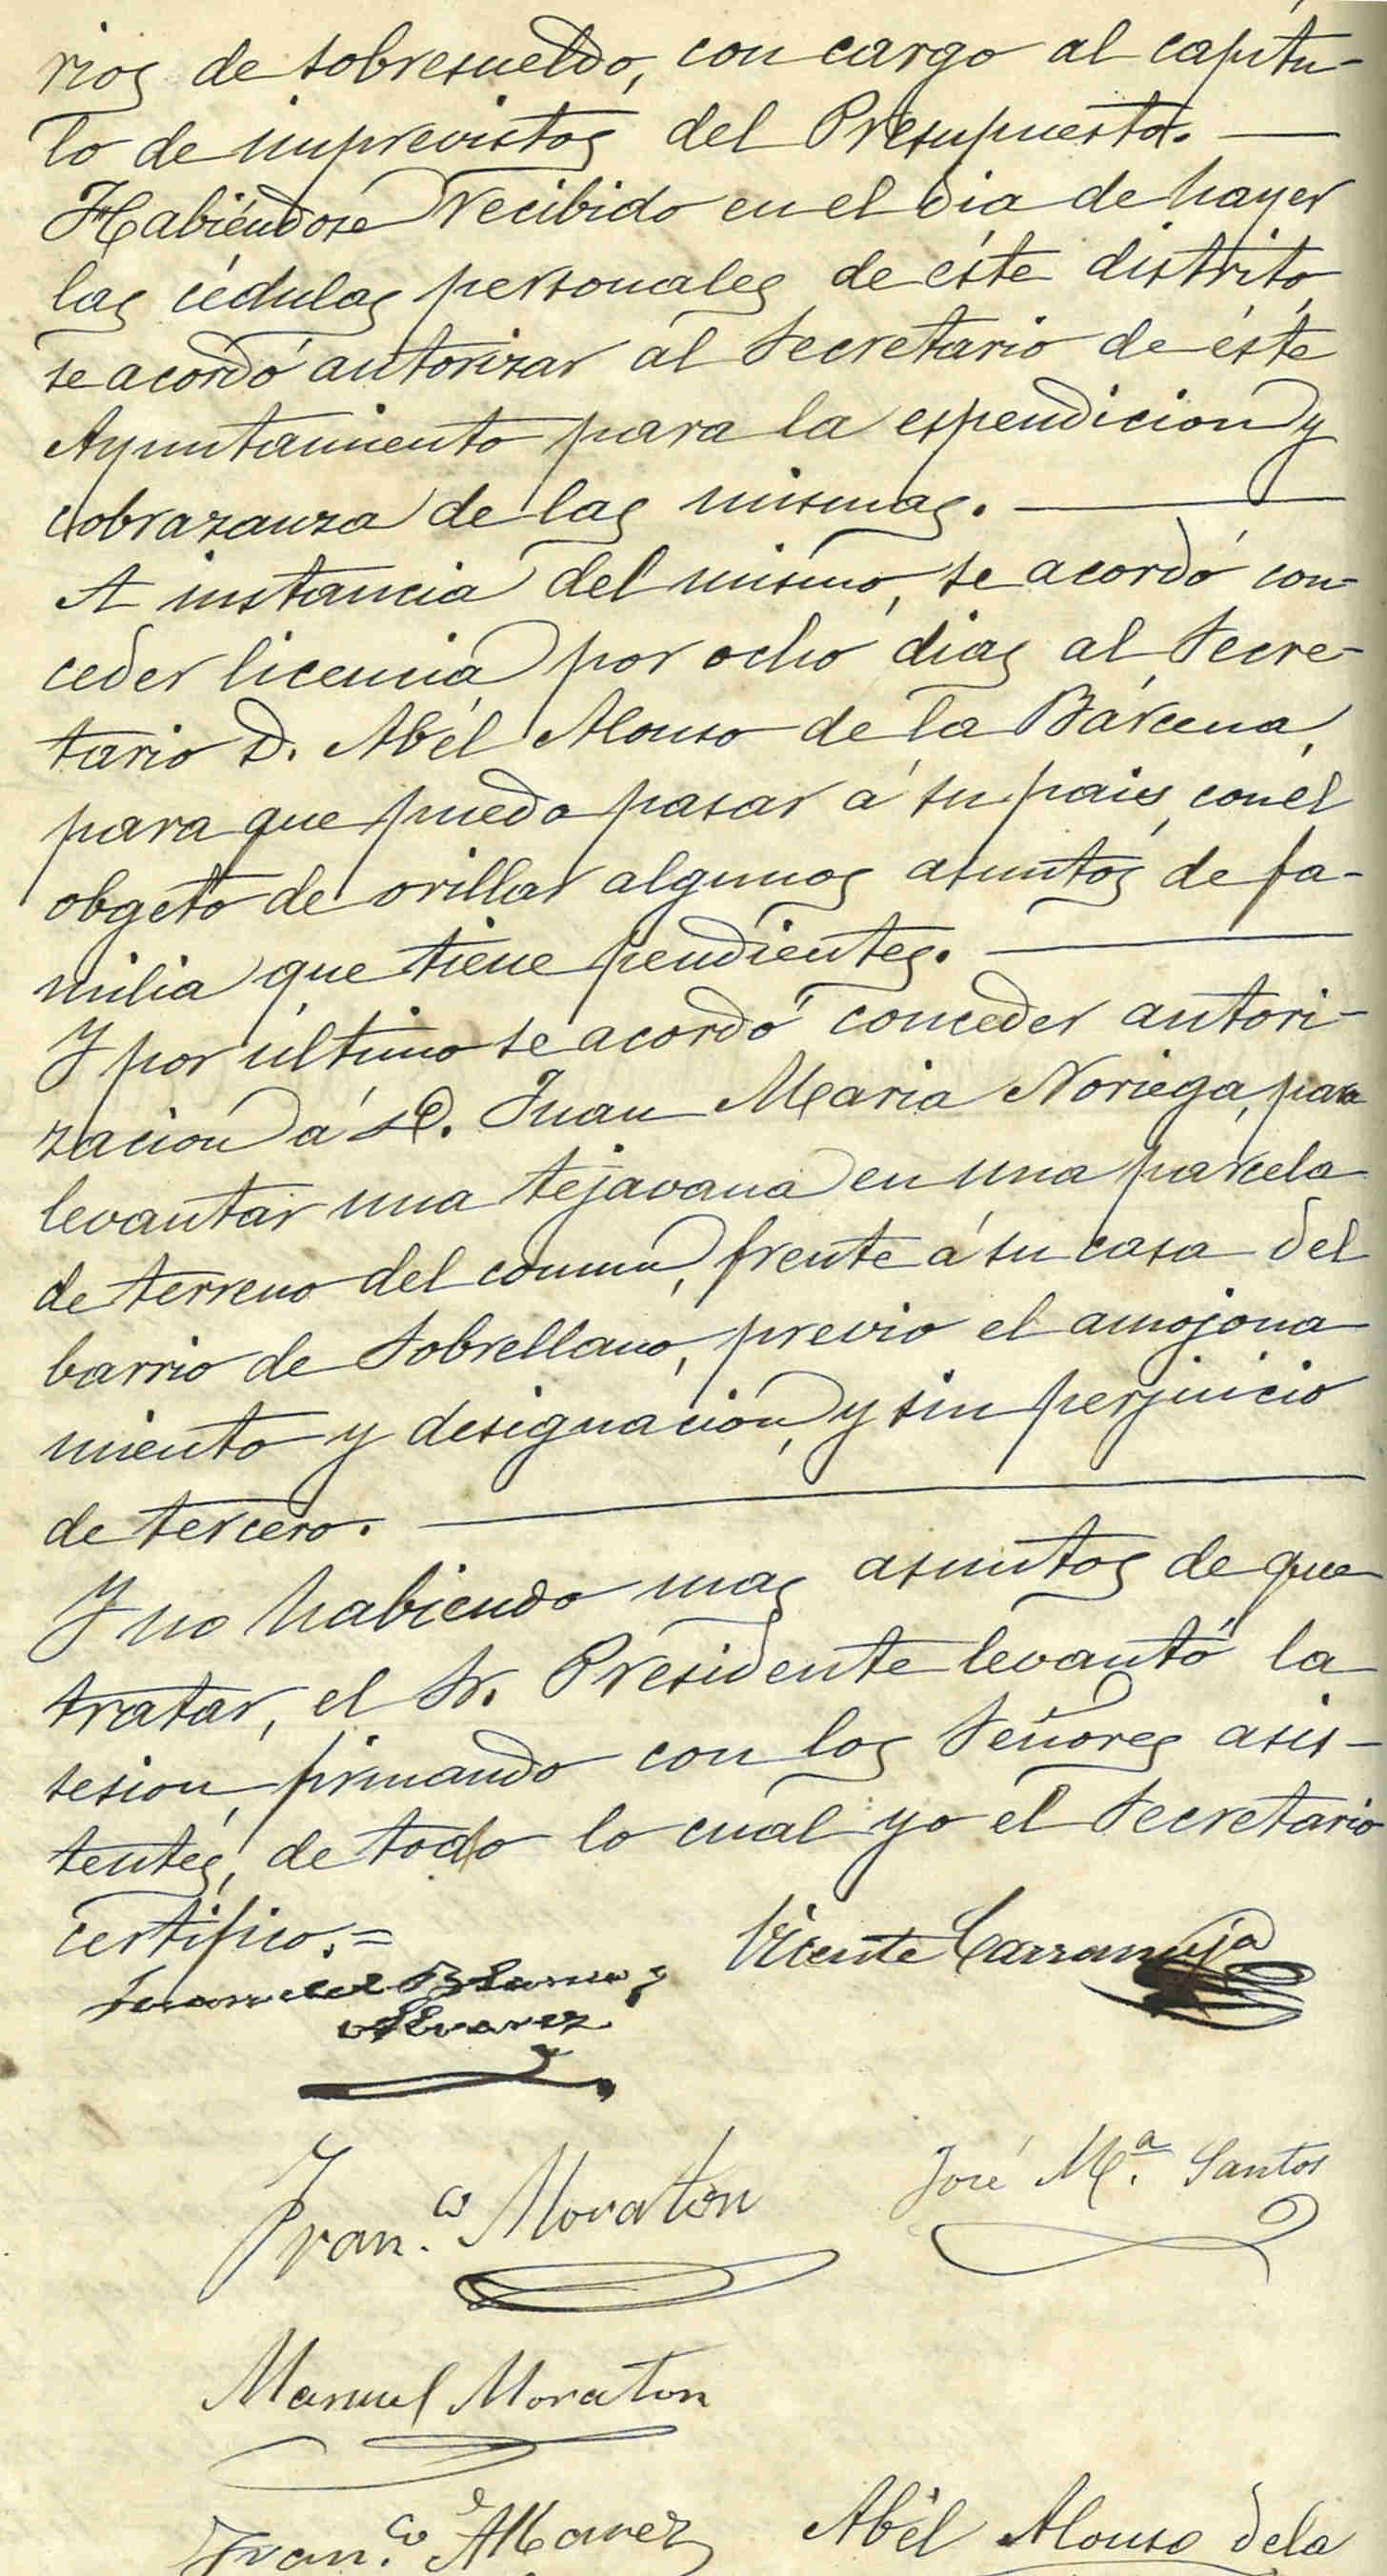 rios de sobresueldo, con cargo al capítu-
lo de imprevistos del Presupuesto.
Habiéndose recibido en el dia de hayer
las cédulas personales de éste distrito,
se acordó autorizar al Secretario de éste
Ayuntamiento para la espendicion y
cobrazanza de las mismas.
A instancia del mismo, se acordó con-
ceder licencia por ocho dias al Secre-
tario D. Abél Alonso de la Bárcena,
para que pueda pasar á su pais, con él
obgeto de orillar algunos asuntos de fa-
milia que tiene pendientes.
Y por último se acordó conceder autori-
zacion á D. Juan Maria Noriega, para
levantar una tejavana en una parcela
de terreno del comun, frente á su casa del
barrio de Sobrellano, previo el amojona
miento y designación, y sin perjuicio
de tercero.
Y no habiendo mas asuntos de que
tratar, el Sr. Presidente levantó la
sesion, firmando con los Señores asis-
tentes, de todo lo cual yo el Secretario
certifico.=
Vicente Carranceja
Alvarez
José Mª. Santos
Fran.co Moraton
Manuel Moraton
Fran.co Alvarez Abél Alonso dela